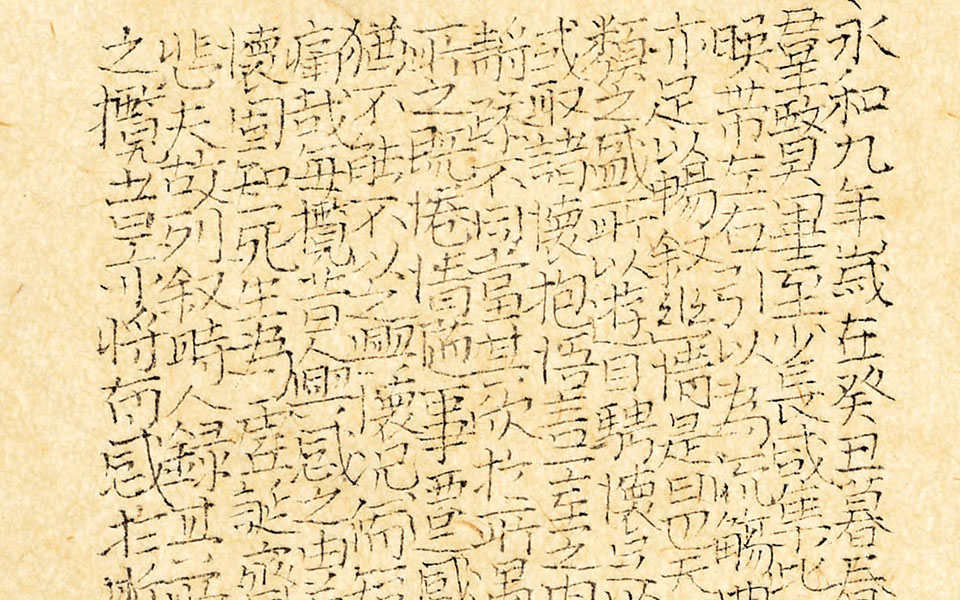 永和九年歲在癸丑暮春
羣賢畢至少長咸集此
暎帶左右引以為流觴曲
亦足以暢叙幽情是日也天
類之盛所以遊目騁懷足以
或取諸懷抱悟言一室之內
静躁不同當其欣於所遇
所之既惓情隨事遷感
猶不能不以之興懷況脩短
痛哉每攬昔人興感之由若
懷固知一死生為虛誕齊
悲夫故列叙時人録其所
之攬者亦將有感於斯